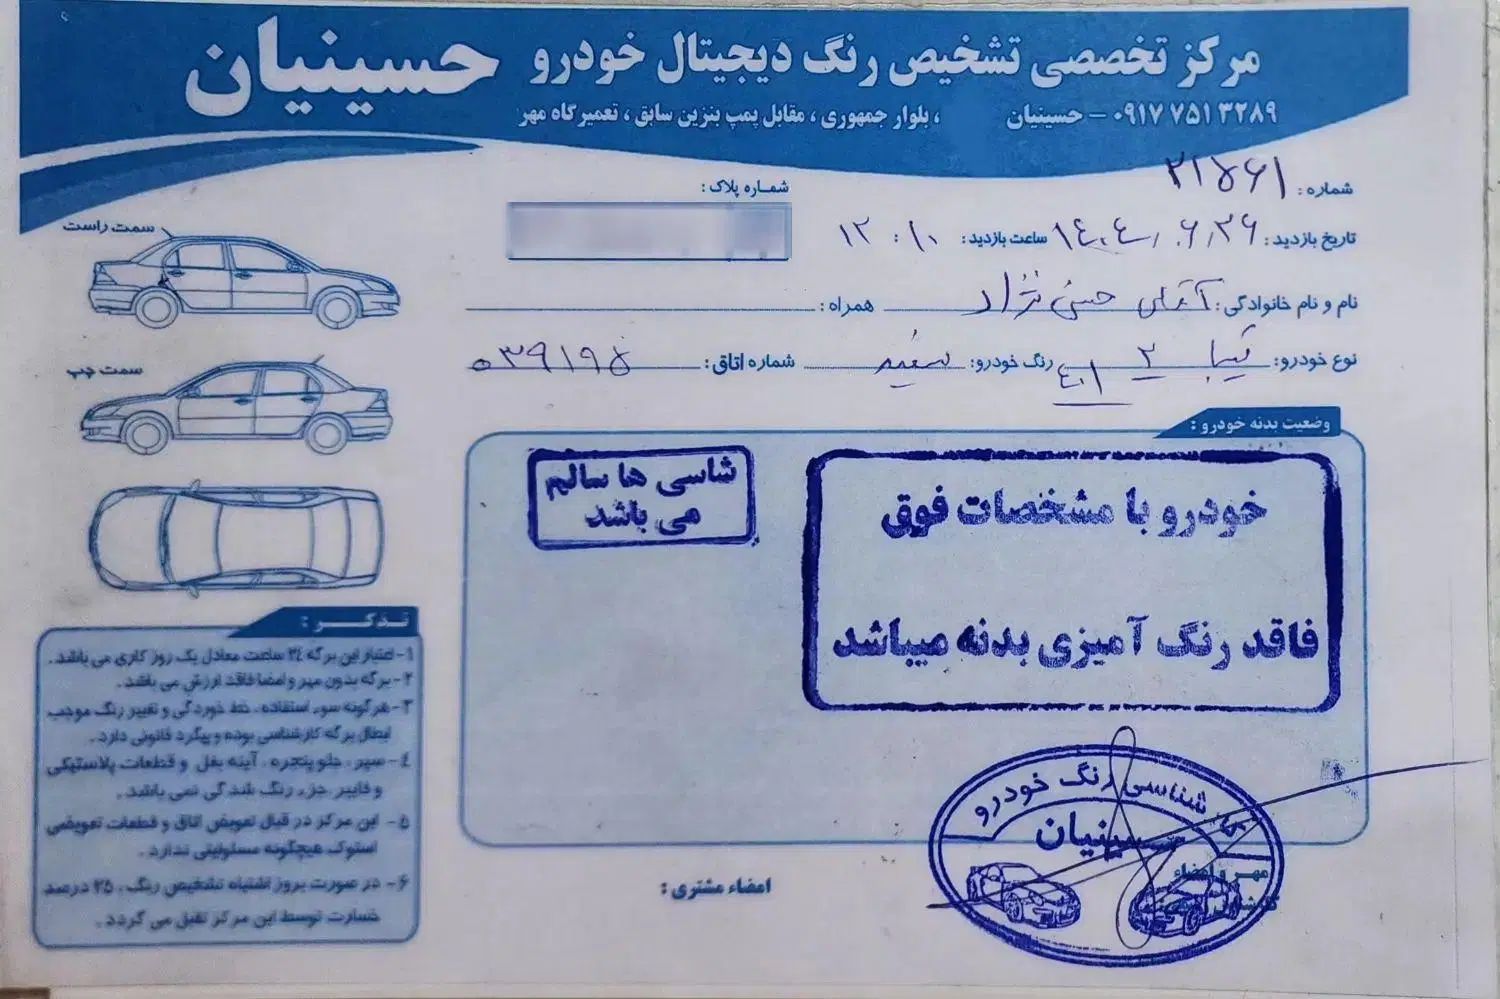 مرکز تخصصی تشخیص رنگ دیجیتال خودرو حسینیان
۰۹۱۷۷۵۱۳۲۸۹ – حسینیان ، بلوار جمهوری ، مقابل پمپ بنزین سابق ، تعمیرگاه مهر
شماره : ۲۱۵۶۱
شماره پلاک :
تاریخ بازدید : ۱۴۰۴/۰۶/۲۶ ساعت بازدید : ۱۲:۱۰
نام و نام خانوادگی : آقای حسنی نژاد همراه :
نوع خودرو : تیبا ۲ ۴۰۱ رنگ خودرو : سفید شماره اتاق : ۰۳۹۱۹۵
سمت راست
سمت چپ
وضعیت بدنه خودرو :
خودرو با مشخصات فوق
فاقد رنگ آمیزی بدنه میباشد
شاسی ها سالم
می باشد
تذکر :
۱- اعتبار این برگه ۲۴ ساعت معادل یک روز کاری می باشد .
۲- برگه بدون مهر و امضا فاقد ارزش می باشد .
۳- هرگونه سوء استفاده ، خط خوردگی و تغییر رنگ موجب
ابطال برگه کارشناسی بوده و پیگرد قانونی دارد .
۴- سپر ، جلو پنجره ، آینه بغل و قطعات پلاستیکی
و فایبر جزء رنگ شدگی نمی باشد .
۵- این مرکز در قبال تعویض اتاق و قطعات تعویضی
استوک هیچگونه مسئولیتی ندارد .
۶- در صورت بروز اشتباه تشخیص رنگ ، ۲۵ درصد
خسارت توسط این مرکز تقبل می گردد .
امضاء مشتری :
مهر و امضاء
شناسی رنگ خودرو
حسینیان